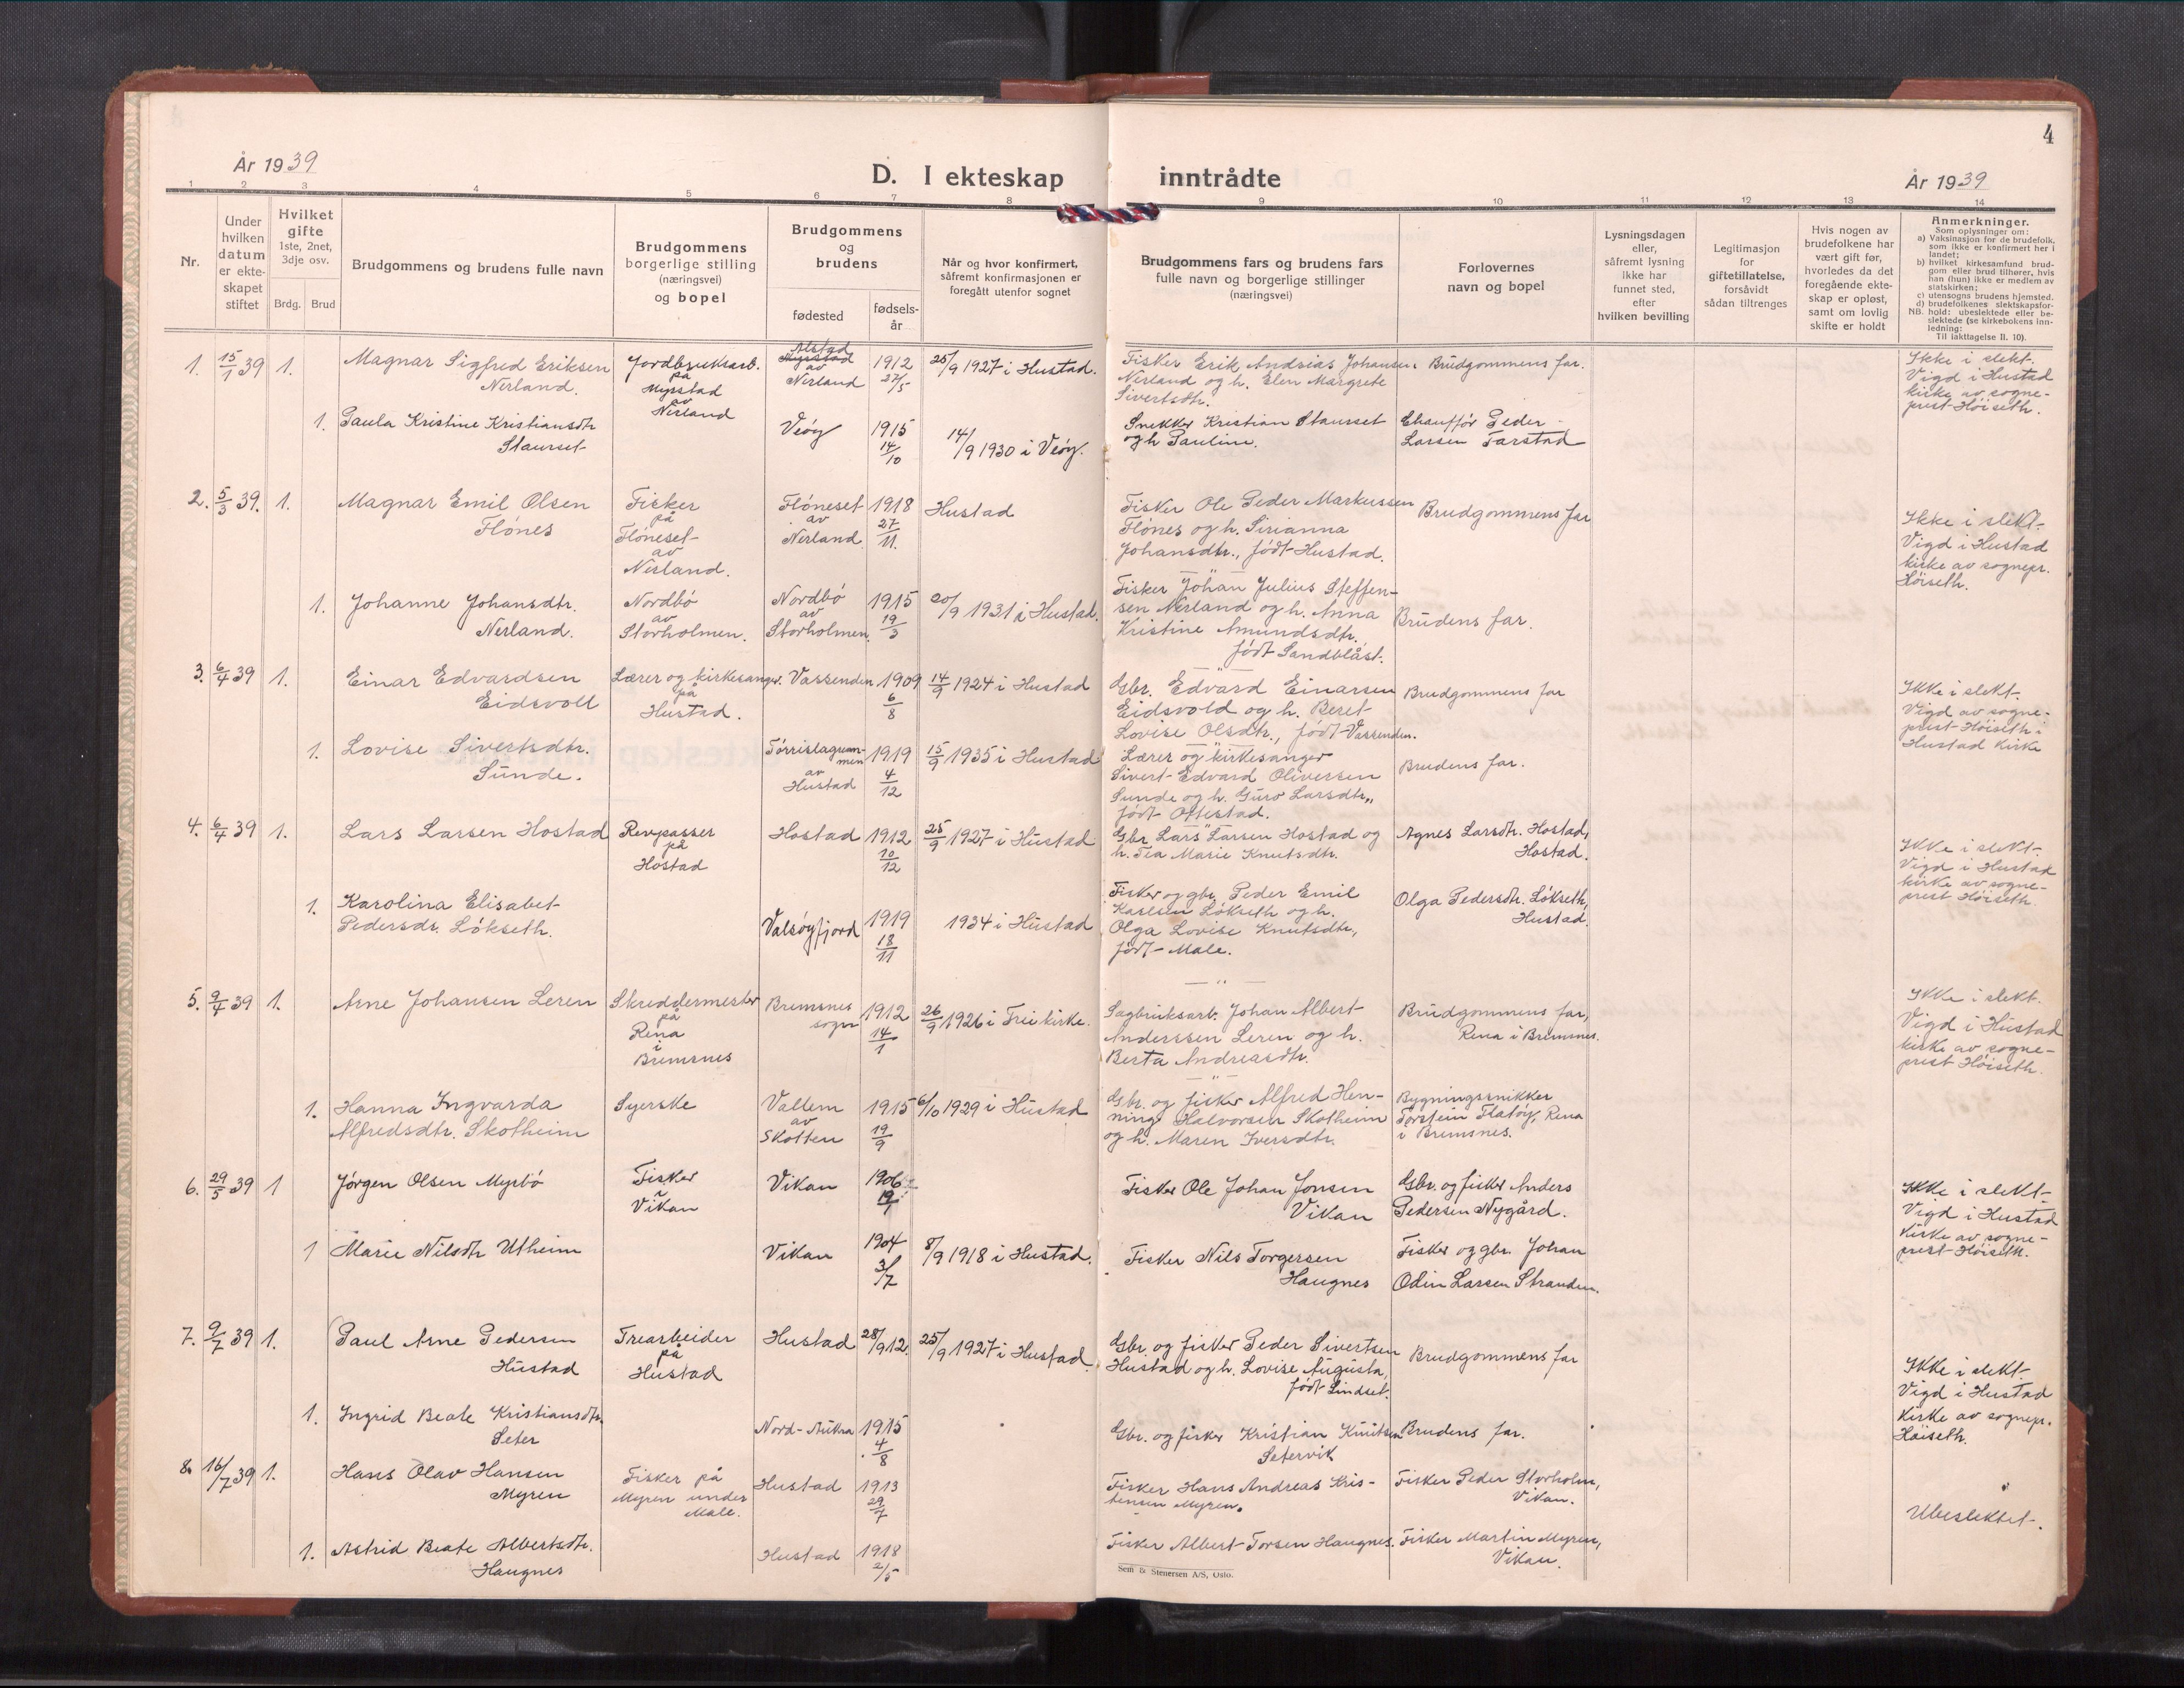 4
År 1939
D. I ekteskap inntrådte
År 1939
1 2 3 4 5 6 7 8 9 10 11 12 13 14
Nr.
Under
hvilken
datum
er ekte-
skapet
stiftet
Hvilket
gifte
1ste, 2net,
3dje osv.
Brdg. Brud
Brudgommens og brudens fulle navn
Brudgommens
borgerlige stilling
(næringsvei)
og bopel
Brudgommens
og
brudens
fødested
fødsels-
år
Når og hvor konfirmert,
såfremt konfirmasjonen er
foregått utenfor sognet
Brudgommens fars og brudens fars
fulle navn og borgerlige stillinger
(næringsvei)
Forlovernes
navn og bopel
Lysningsdagen
eller,
såfremt lysning
ikke har
funnet sted,
efter
hvilken bevilling
Legitimasjon
for
giftetillatelse,
forsåvidt
sådan tiltrenges
Hvis nogen av
brudefolkene har
vært gift før,
hvorledes da det
foregående ekte-
skap er opløst,
samt om lovlig
skifte er holdt
Anmerkninger.
Som oplysninger om:
a) Vaksinasjon for de brudefolk,
som ikke er konfirmert her i
landet;
b) hvilket kirkesamfund brud-
gom eller brud tilhører, hvis
han (hun) ikke er medlem av
statskirken;
c) utensogns brudens hjemsted.
d) brudefolkenes slektskapsfor-
NB. hold: ubeslektede eller be-
slektede (se kirkebokens inn-
ledning:
Til iakttagelse II. 10).
1. 15/1 39 1.
Magnar Sigfred Eriksen
Nerland.
Jordbruksarb.
på
Myrstad
av
Nerland
Alstad
Myrstad
av
Nerland
1912
27/5
25/9 1927 i Hustad.
Fisker Erik Andreas Johansen
Nerland og h. Elen Margrete
Sivertsdtr.
Brudgommens far.
Ikke i slekt.
Vigd i Hustad
kirke av sogne-
prest Höiseth.
1. Paula Kristine Kristiansdtr
Staurset
Veöy
1915
14/10
14/9 1930 i Veöy.
Snekker Kristian Staurset
og h. Pauline.
Chauffør Peder
Larsen Tarstad
2. 5/3 39. 1.
Magnar Emil Olsen
Flónes
Fisker
på
Flóneset
av
Nerland.
Flóneset
av
Nerland.
1918
27/11.
Hustad
Fisker Ole Peder Markussen
Flónes og h. Sirianna
Johansdtr., født Hustad.
Brudgommens far
Ikke i slekt.
Vigd i Hustad
kirke av sognepr.
Höiseth.
1. Johanne Johansdtr.
Nerland.
Nordbó
av
Storholmen.
Nordbó
av
Storholmen.
1915
19/3
20/9 1931 i Hustad.
Fisker Johan Julius Steffen-
sen Nerland og h. Anna
Kristine Amundsdtr.,
født Sandblåst.
Brudens far.
3. 6/4 39 1.
Einar Edvardsen
Eidsvoll
Lærer og kirkesanger.
på
Hustad.
Vassenden
1909
6/8
14/9 1924 i Hustad
Gbr. Edvard Einarsen
Eidsvold og h. Beret
Lovise Olsdtr., født Vassenden.
Brudgommens far
Ikke i slekt.
Vigd av sogne-
prest Höiseth i
Hustad kirke
1. Lovise Sivertsdtr.
Sunde.
Tórrislagrum-
men
av
Hustad
1919
4/12
15/9 1935 i Hustad
Lærer og kirkesanger
Sivert Edvard Oliversen
Sunde og h. Guro Larsdtr.,
født Ottestad.
Brudens far.
4. 6/4 39 1.
Lars Larsen Hostad
Revpasser
på
Hostad
Hostad
1912
10/12
25/9 1927 i Hustad
Gbr Lars Larsen Hostad og
h. Tea Marie Knutsdtr.
Agnes Larsdtr. Hostad,
Hostad.
Ikke i slekt.
Vigd i Hustad
kirke av sogne-
prest Höiseth.
1. Karolina Elisabet
Pedersdtr. Lókseth.
Valsöyfjord
1919
18/11
1934 i Hustad
Fisker og gbr. Peder Emil
Karlsen Lókseth og h.
Olga Lovise Knutsdtr,
født Male.
Olga Pedersdtr. Lókseth,
Hustad.
5. 9/4 39 1.
Arne Johansen Leren
Skreddermester
på
Rena
i
Bremsnes
Bremsnes
sogn
1912
14/1
26/9 1926 i Frei kirke.
Sagbruksarb. Johan Albert
Anderssen Leren og h.
Berta Andreasdtr.
Brudgommens far,
Rena i Bremsnes.
Ikke i slekt.
Vigd i Hustad
kirke av sogne-
prest Höiseth.
1. Hanna Ingvarda
Alfredsdtr. Skotheim
Syerske
Vallem
av
Skotten
1915
19/9
6/10 1929 i Hustad
Gbr. og fisker Alfred Hen-
ning Halvorsen Skotheim
og h. Maren Iversdtr.
Bygningssnikker
Torstein Flatöy, Rena
i Bremsnes.
6. 29/5 39 1
Jörgen Olsen Myrbö
Fisker
Vikan
Vikan
1906
Fisker Ole Johan Jonsen
Vikan
Gbr. og fisker Anders
Pedersen Nygård.
Ikke i slekt
Vigd i Hustad
kirke av sogne-
prest Höiseth.
1 Marie Nilsdtr Utheim
Vikan
1904
3/7
8/9 1918 i Hustad.
Fisker Nils Torgersen
Haugnes
Fisker og gbr. Johan
Odin Larsen Stranden.
7. 9/7 39 1.
Paul Arne Pedersen
Hustad
Trearbeider
på
Hustad
Hustad
28/9 12.
25/9 1927 i Hustad.
Gbr. og fisker Peder Sivertsen
Hustad og h. Lovise Augusta,
født Lindset.
Brudgommens far
Ikke i slekt.
Vigd i Hustad
kirke av sognepr.
Höiseth.
1. Ingrid Beate Kristiansdtr.
Seter
Nord-Aukra
1915
4/8
Gbr. og fisker Kristian Knutsen
Setervik
Brudens far.
8. 16/7 39 1.
Hans Olav Hansen
Myren
Fisker på
Myren under
Male.
Hustad
1913
29/7
Fisker Hans Andreas Kris-
tensen Myren.
Fisker Peder Storholm,
Vikan.
Ubeslektet.
1. Astrid Beate Albertsdtr.
Haugnes
Hustad
1918
2/5
Fisker Albert Torsen Haugnes.
Fisker Martin Myren,
Vikan.
Sem & Stenersen A/S, Oslo.